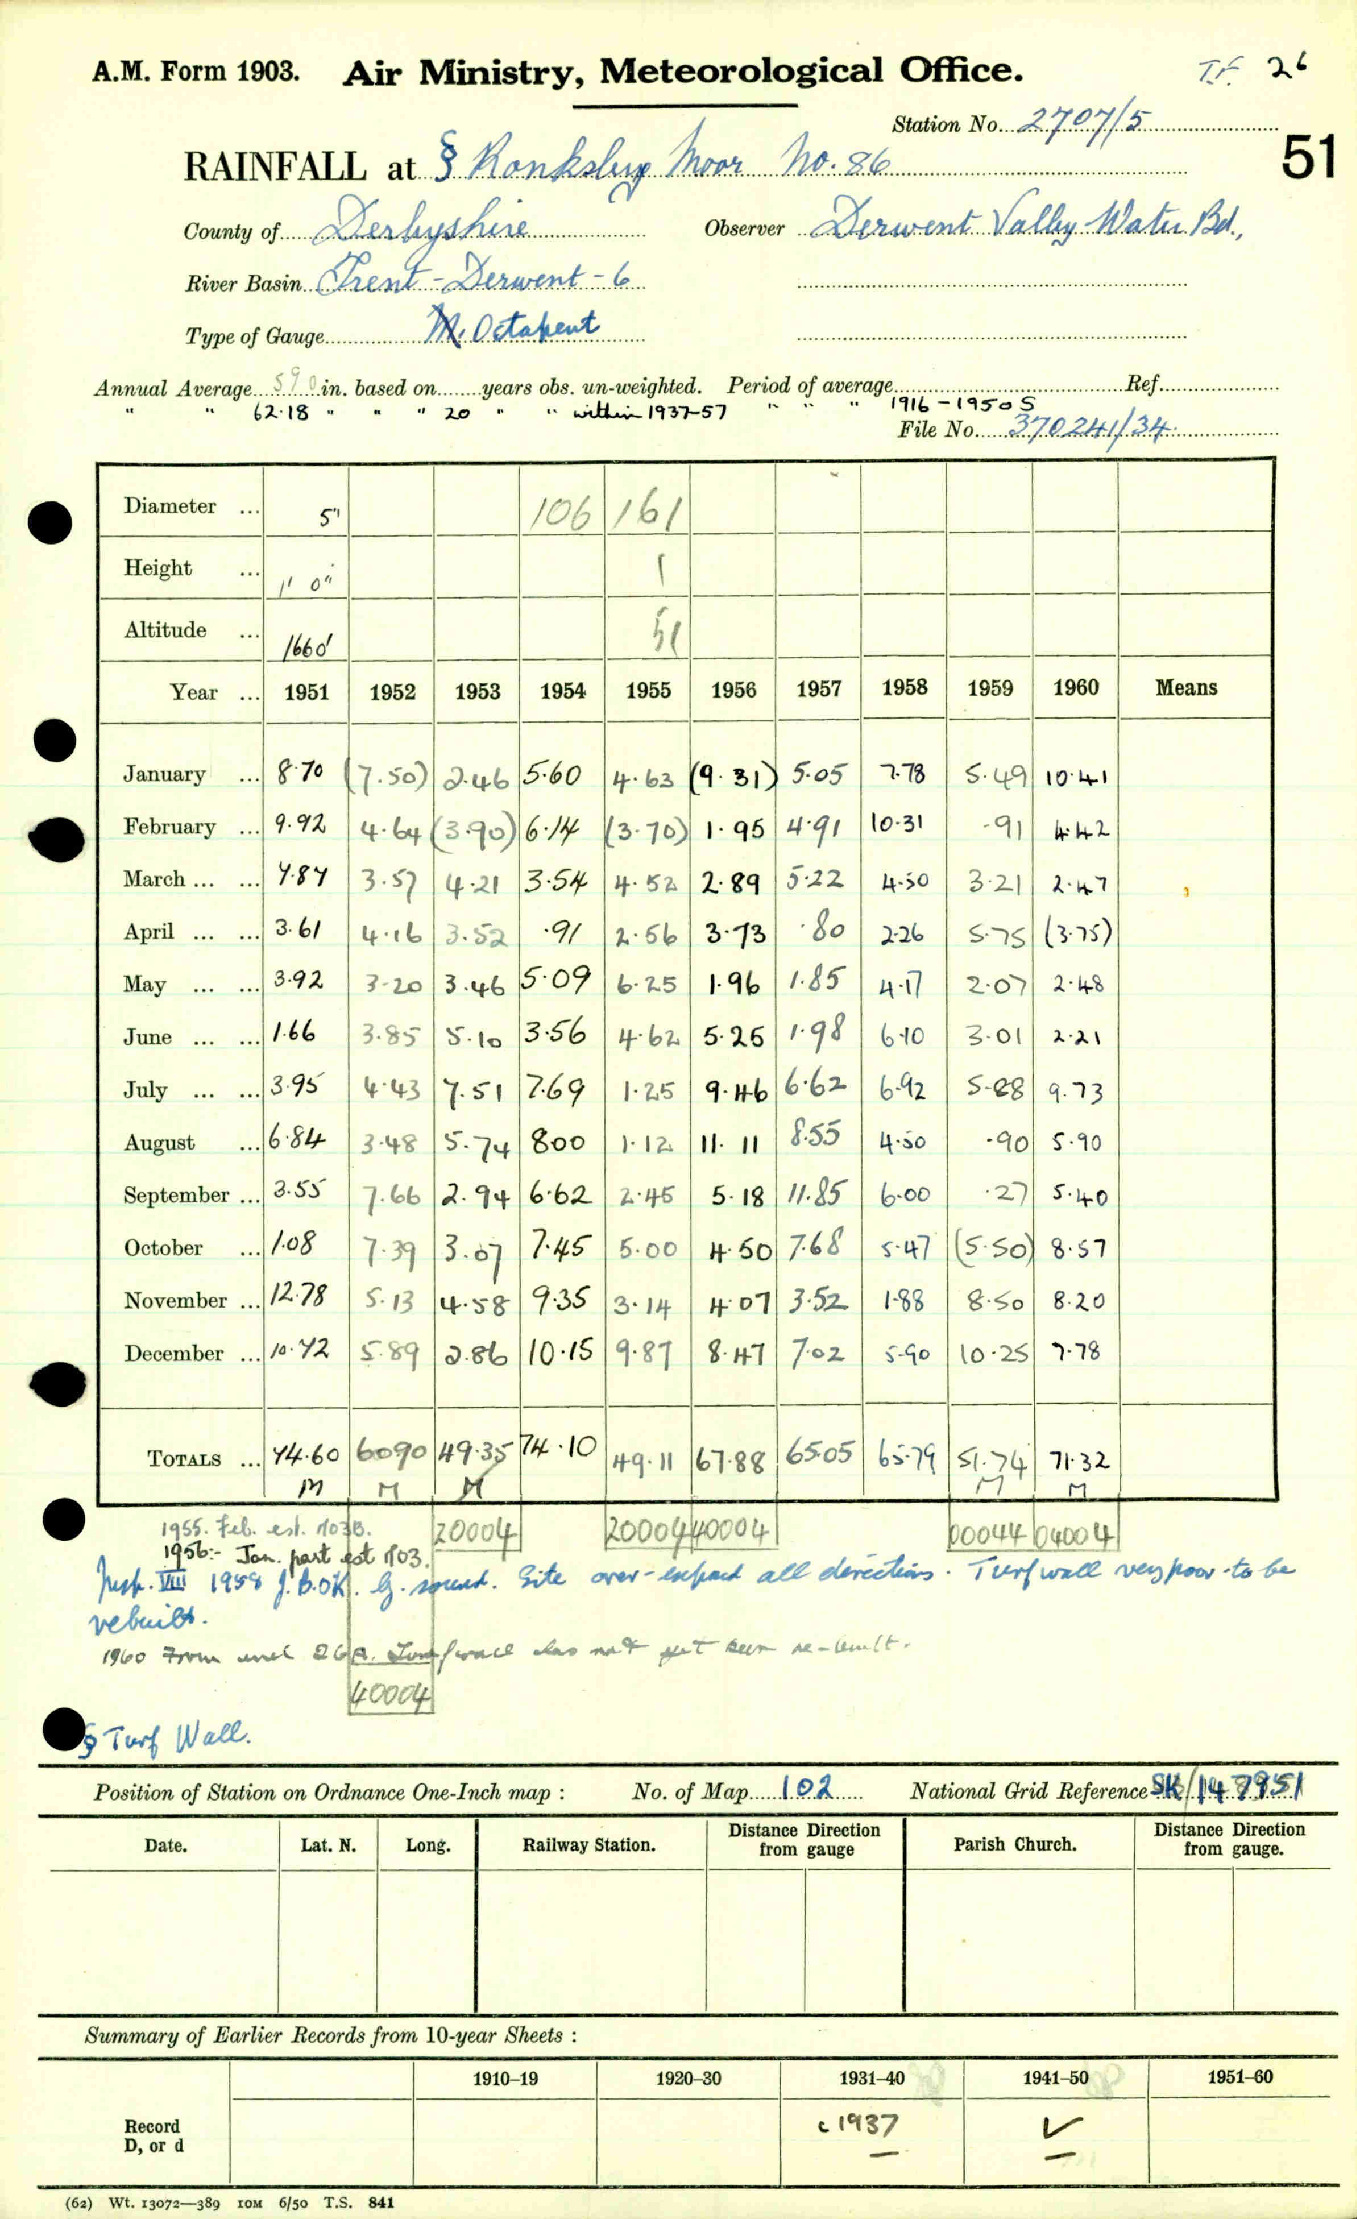 A.M. Form 1903. Air Ministry, Meteorological Office. T.F. 26
Station No. 2707/5
51
RAINFALL at § Ronksley Moor No. 86
County of Derbyshire Observer Derwent Valley Water Bd.,
River Basin Trent - Derwent - 6
Type of Gauge M. Octapent
Annual Average 59 0 in. based on years obs. un-weighted. Period of average Ref.
" " 62.18 " " " 20 " " within 1937-57 " " " 1916-1950 S
File No. 370241/34
Diameter ... 5" 106 161
Height ... 1' 0" 1
Altitude ... 1660' 51
Year ... 1951 1952 1953 1954 1955 1956 1957 1958 1959 1960 Means
January ... 8.70 (7.50) 2.46 5.60 4.63 (9.31) 5.05 7.78 5.49 10.41
February ... 9.92 4.64 (3.90) 6.14 (3.70) 1.95 4.91 10.31 .91 4.42
March ... ... 7.87 3.57 4.21 3.54 4.52 2.89 5.22 4.50 3.21 2.47
April ... ... 3.61 4.16 3.52 .91 2.56 3.73 .80 2.26 5.75 (3.75)
May ... ... 3.92 3.20 3.46 5.09 6.25 1.96 1.85 4.17 2.07 2.48
June ... ... 1.66 3.85 5.10 3.56 4.62 5.25 1.98 6.10 3.01 2.21
July ... ... 3.95 4.43 7.51 7.69 1.25 9.46 6.62 6.92 5.88 9.73
August ... 6.84 3.48 5.74 800 1.12 11.11 8.55 4.50 .90 5.90
September ... 3.55 7.66 2.94 6.62 2.45 5.18 11.85 6.00 .27 5.40
October ... 1.08 7.39 3.07 7.45 5.00 4.50 7.68 5.47 (5.50) 8.57
November ... 12.78 5.13 4.58 9.35 3.14 4.07 3.52 1.88 8.50 8.20
December ... 10.72 5.89 2.86 10.15 9.87 8.47 7.02 5.90 10.25 7.78
TOTALS ... 74.60 6090 49.35 74.10 49.11 67.88 65.05 65.79 51.74 71.32
M M M M M
1955. Feb. est. 1103B. 20004 20004 40004 00044 04004
1956:- Jan. part est 1103.
Insp. VIII 1958 J.B.OK. G. sound. Site over-exposed all directions. Turf wall very poor - to be
rebuilt.
1960 From insp. Turf wall has not yet been re-built.
40004
§ Turf Wall.
Position of Station on Ordnance One-Inch map : No. of Map 102 National Grid Reference SK/147951
Date. Lat. N. Long. Railway Station. Distance Direction from gauge Parish Church. Distance Direction from gauge.
Summary of Earlier Records from 10-year Sheets :
1910–19 1920–30 1931–40 1941–50 1951–60
Record D, or d c1937 ✓
(62) Wt. 13072—389 10M 6/50 T.S. 841